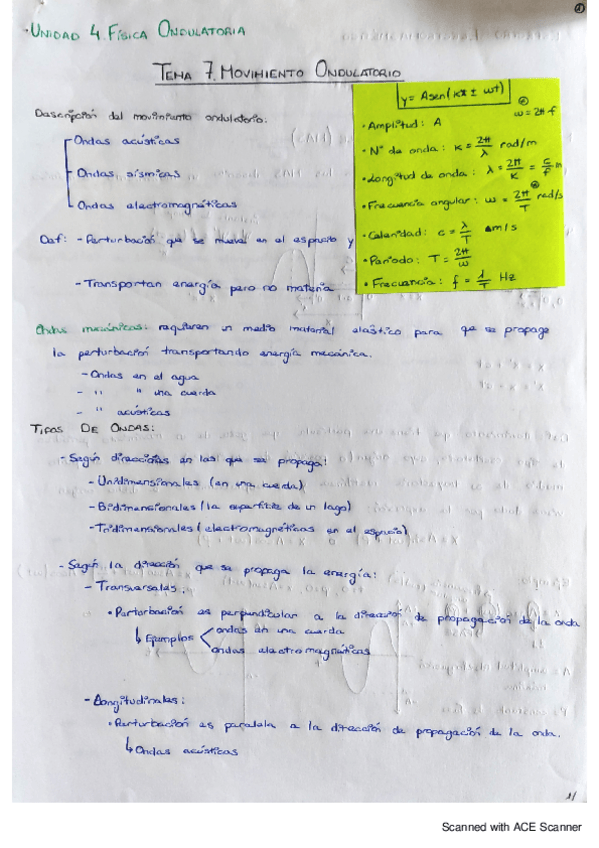 ①
·UNIDAD 4. FÍSICA ONDULATORIA
TEMA 7. MOVIMIENTO ONDULATORIO
Descripción del movimiento ondulatorio:
Ondas acústicas
Ondas sísmicas
Ondas electromagnéticas
Def: - Perturbación que se mueve en el espacio y
- Transportan energía pero no materia
y = A sen(kx ± wt)
w = 2π f
· Amplitud: A
· Nº de onda: k = 2π/λ rad/m
· Longitud de onda: λ = 2π/k = c/f m
· Frecuencia angular: w = 2π/T rad/s
· Celeridad: c = λ/T m/s
· Período: T = 2π/w
· Frecuencia: f = 1/T Hz
Ondas mecánicas: requieren un medio material elástico para que se propage
la perturbación transportando energía mecánica.
- Ondas en el agua
- " " una cuerda
- " acústicas
TIPOS DE ONDAS:
- Según direcciones en las que se propaga:
- Unidimensionales (en una cuerda)
- Bidimensionales (la superficie de un lago)
- Tridimensionales (electromagnéticas en el espacio)
- Según la dirección que se propaga la energía:
- Transversales:
· Perturbación es perpendicular a la dirección de propagación de la onda
↳ Ejemplos < ondas en una cuerda
ondas electromagnéticas
- Longitudinales:
· Perturbación es paralela a la dirección de propagación de la onda.
↳ Ondas acústicas
Scanned with ACE Scanner